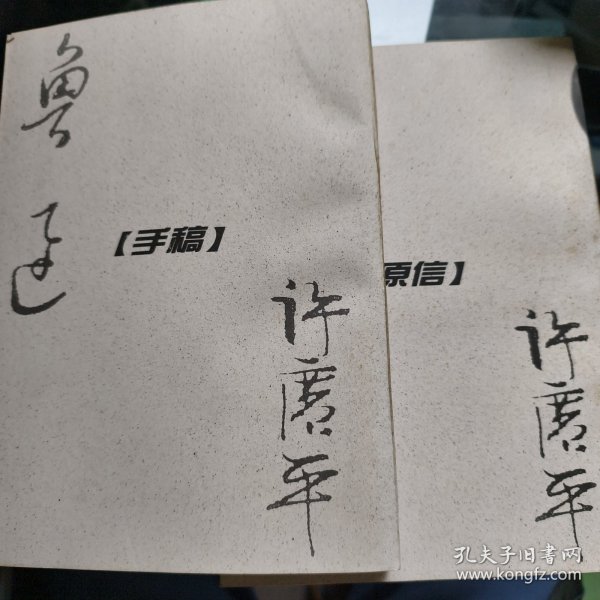 鲁迅
【手稿】
许广平
原信】
许广平
孔夫子旧书网
www.kongfz.com